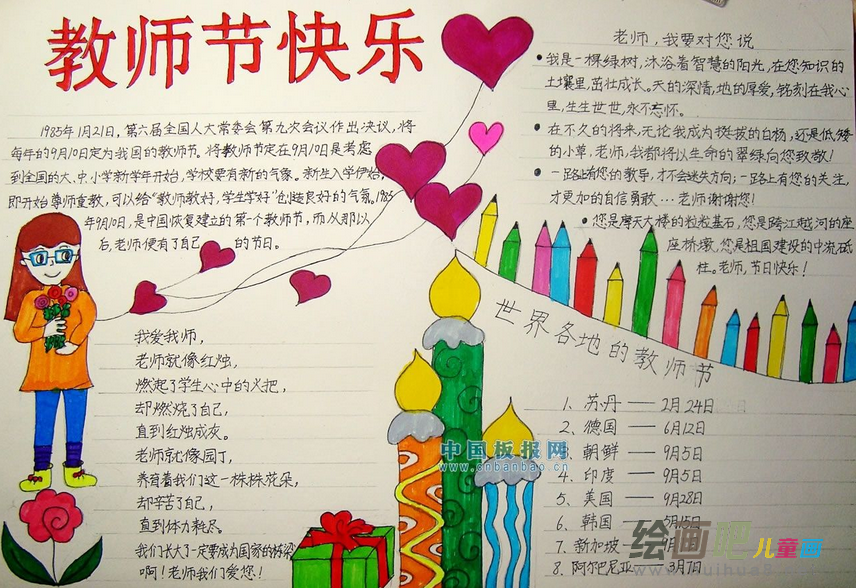 教师节快乐
1985年1月21日，第六届全国人大常委会第九次会议作出决议，将
每年的9月10日定为我国的教师节。将教师节定在9月10日是考虑
到全国的大、中、小学新学年开始，学校要有新的气象。新生入学伊始，
即开始尊师重教，可以给“教师教好，学生学好”创造良好的气氛。1985
年9月10日，是中国恢复建立的第一个教师节，而从那以
后，老师便有了自己 的节日。
我爱我师，
老师就像红烛，
燃起了学生心中的火把，
却燃烧了自己，
直到红烛成灰。
老师就像园丁，
养育着我们这一株株花朵，
却辛苦了自己，
直到体力耗尽。
我们长大了一定要成为国家的栋梁
啊！老师我们爱您！
老师，我要对您说
●我是一棵绿树，沐浴着智慧的阳光，在您知识的
土壤里，茁壮成长。天的深情，地的厚爱，铭刻在我心
里，生生世世，永不忘怀。
●在不久的将来，无论我成为挺拔的白杨，还是低矮
的小草，老师，我都将以生命的翠绿向您致敬！
●一路上有您的教导，才不会迷失方向；一路上有您的关注，
才更加的自信勇敢…老师谢谢您！
●您是摩天大楼的粒粒基石，您是跨江越河的座
座桥墩，您是祖国建设的中流砥
柱。老师，节日快乐！
世界各地的教师节
1、苏丹——2月24日
2、德国——6月12日
3、朝鲜——9月5日
4、印度——9月5日
5、美国——9月28日
6、韩国——5月15日
7、新加坡——
8、阿尔巴尼亚——3月7日
中国板报网
www.cnbanbao.cn
绘画吧儿童画